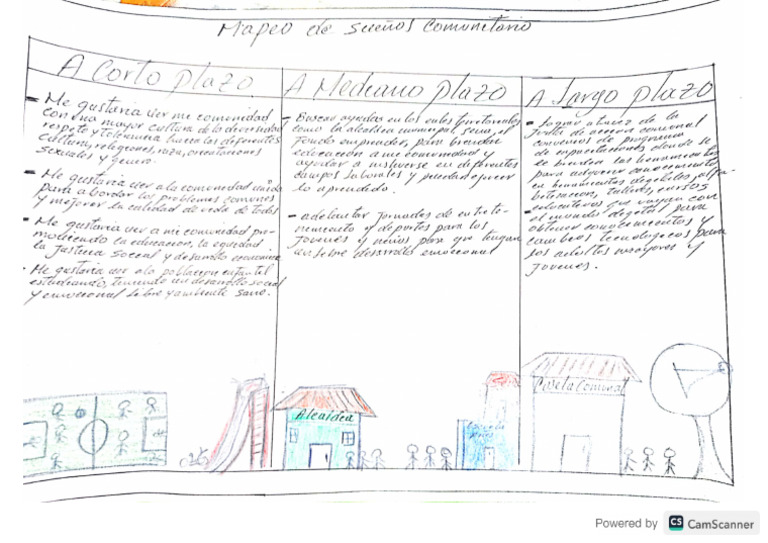 Mapeo de sueños Comunitario
A Corto plazo
- Me gustaria ver mi comunidad
con una mayor cultura de la diversidad
respeto y tolerancia hacia las diferentes
culturas, religiones, raza, orientaciones
sexuales y genero.
- Me gustaria ver a la comunidad unida
para abordar los problemas comunes
y mejorar la calidad de vida de todos
- Me gustaria ver a mi comunidad pro-
moviendo la educacion, la equidad
la justicia social y desarrollo economico
- Me gustaria ver a la poblacion infantil
estudiando, teniendo un desarrollo social
y emocional libre y ambiente sano.
A Mediano plazo
- Buscar ayudas en los entes
como la alcaldia municipal, sena, el
fondo emprender, para brindar
educacion a mi comunidad y
ayudar a en diferentes
campos laborales y puedan ejercer
lo aprendido.
- adelantar jornadas de entrete-
nimiento y deportes para los
jovenes y niños para que tengan
un libre desarrollo emocional
A Largo plazo
- Lograr a traves de la
junta de accion comunal
convenios de programa
de capacitaciones donde se
le brinden las herramientas
para adquirir conocimientos
en herramientas digitales, alfa-
betizacion, talleres, cursos
educativos que vayan con
el mundo digital para
obtener conocimientos y
cambios tecnologicos para
los adultos mayores y
jovenes.
Alcaldia
Escuela
Caseta Comunal
Powered by CS CamScanner